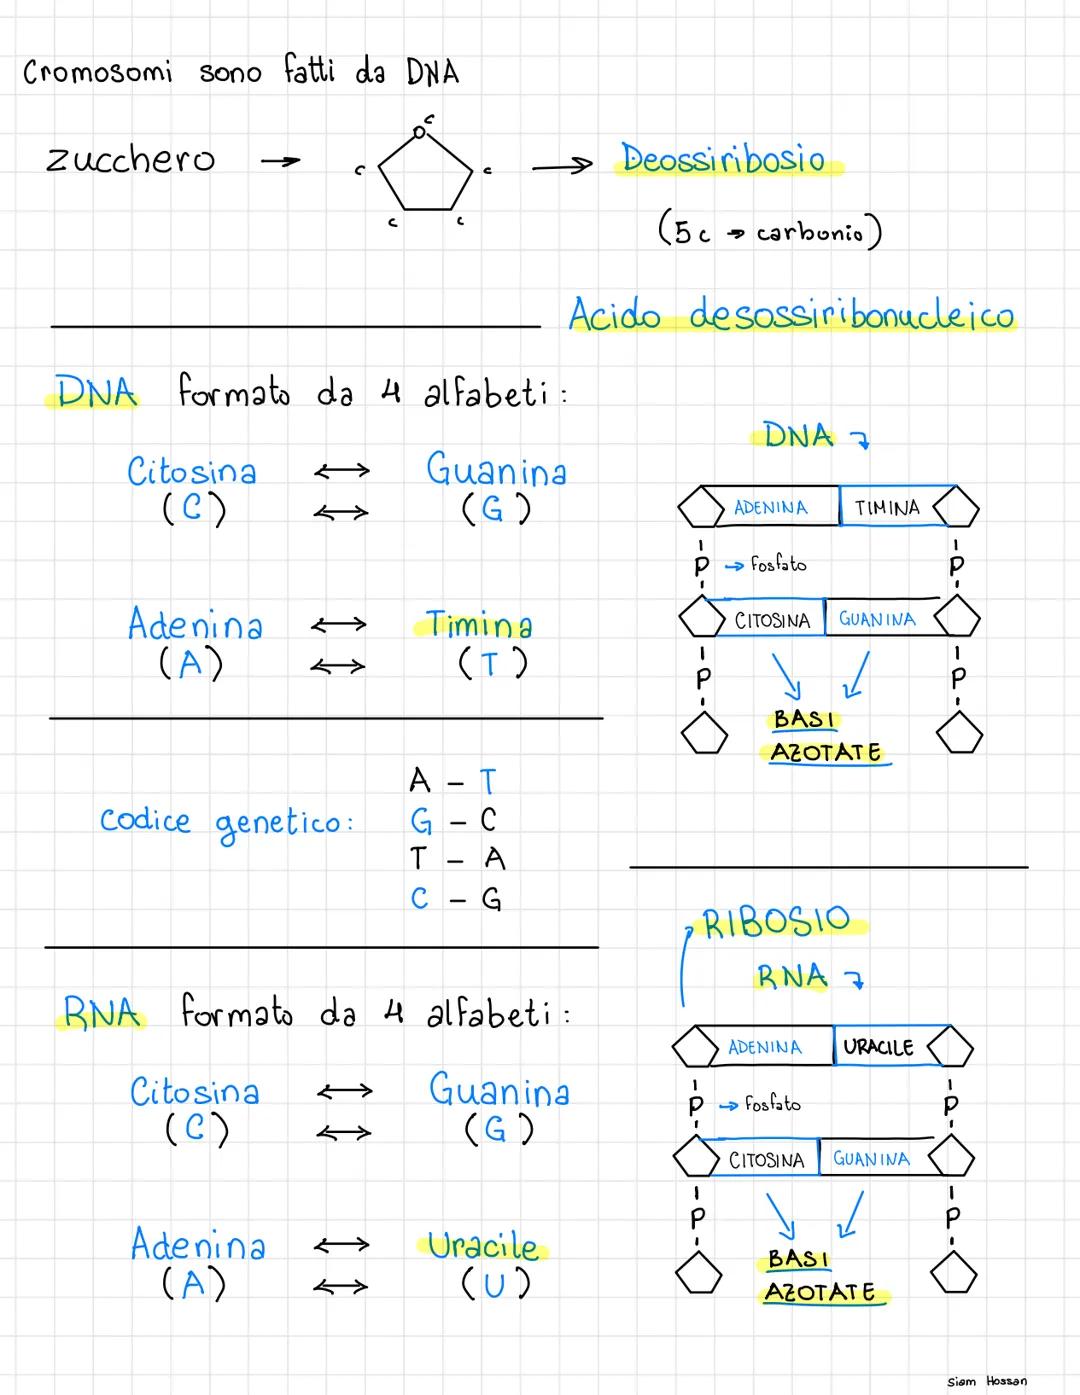 Cromosomi sono fatti da DNA
zucchero → c c c c c → Deossiribosio
(5c → carbonio)
Acido desossiribonucleico
DNA formato da 4 alfabeti:
Citosina ↔ Guanina
(C) ↔ (G)
Adenina ↔ Timina
(A) ↔ (T)
DNA
ADENINA TIMINA
P → fosfato P
CITOSINA GUANINA
P P
BASI
AZOTATE
codice genetico:
A - T
G - C
T - A
C - G
RIBOSIO
RNA
RNA formato da 4 alfabeti:
Citosina ↔ Guanina
(C) ↔ (G)
Adenina ↔ Uracile
(A) ↔ (U)
ADENINA URACILE
P → fosfato P
CITOSINA GUANINA
P P
BASI
AZOTATE
Siam Hossan